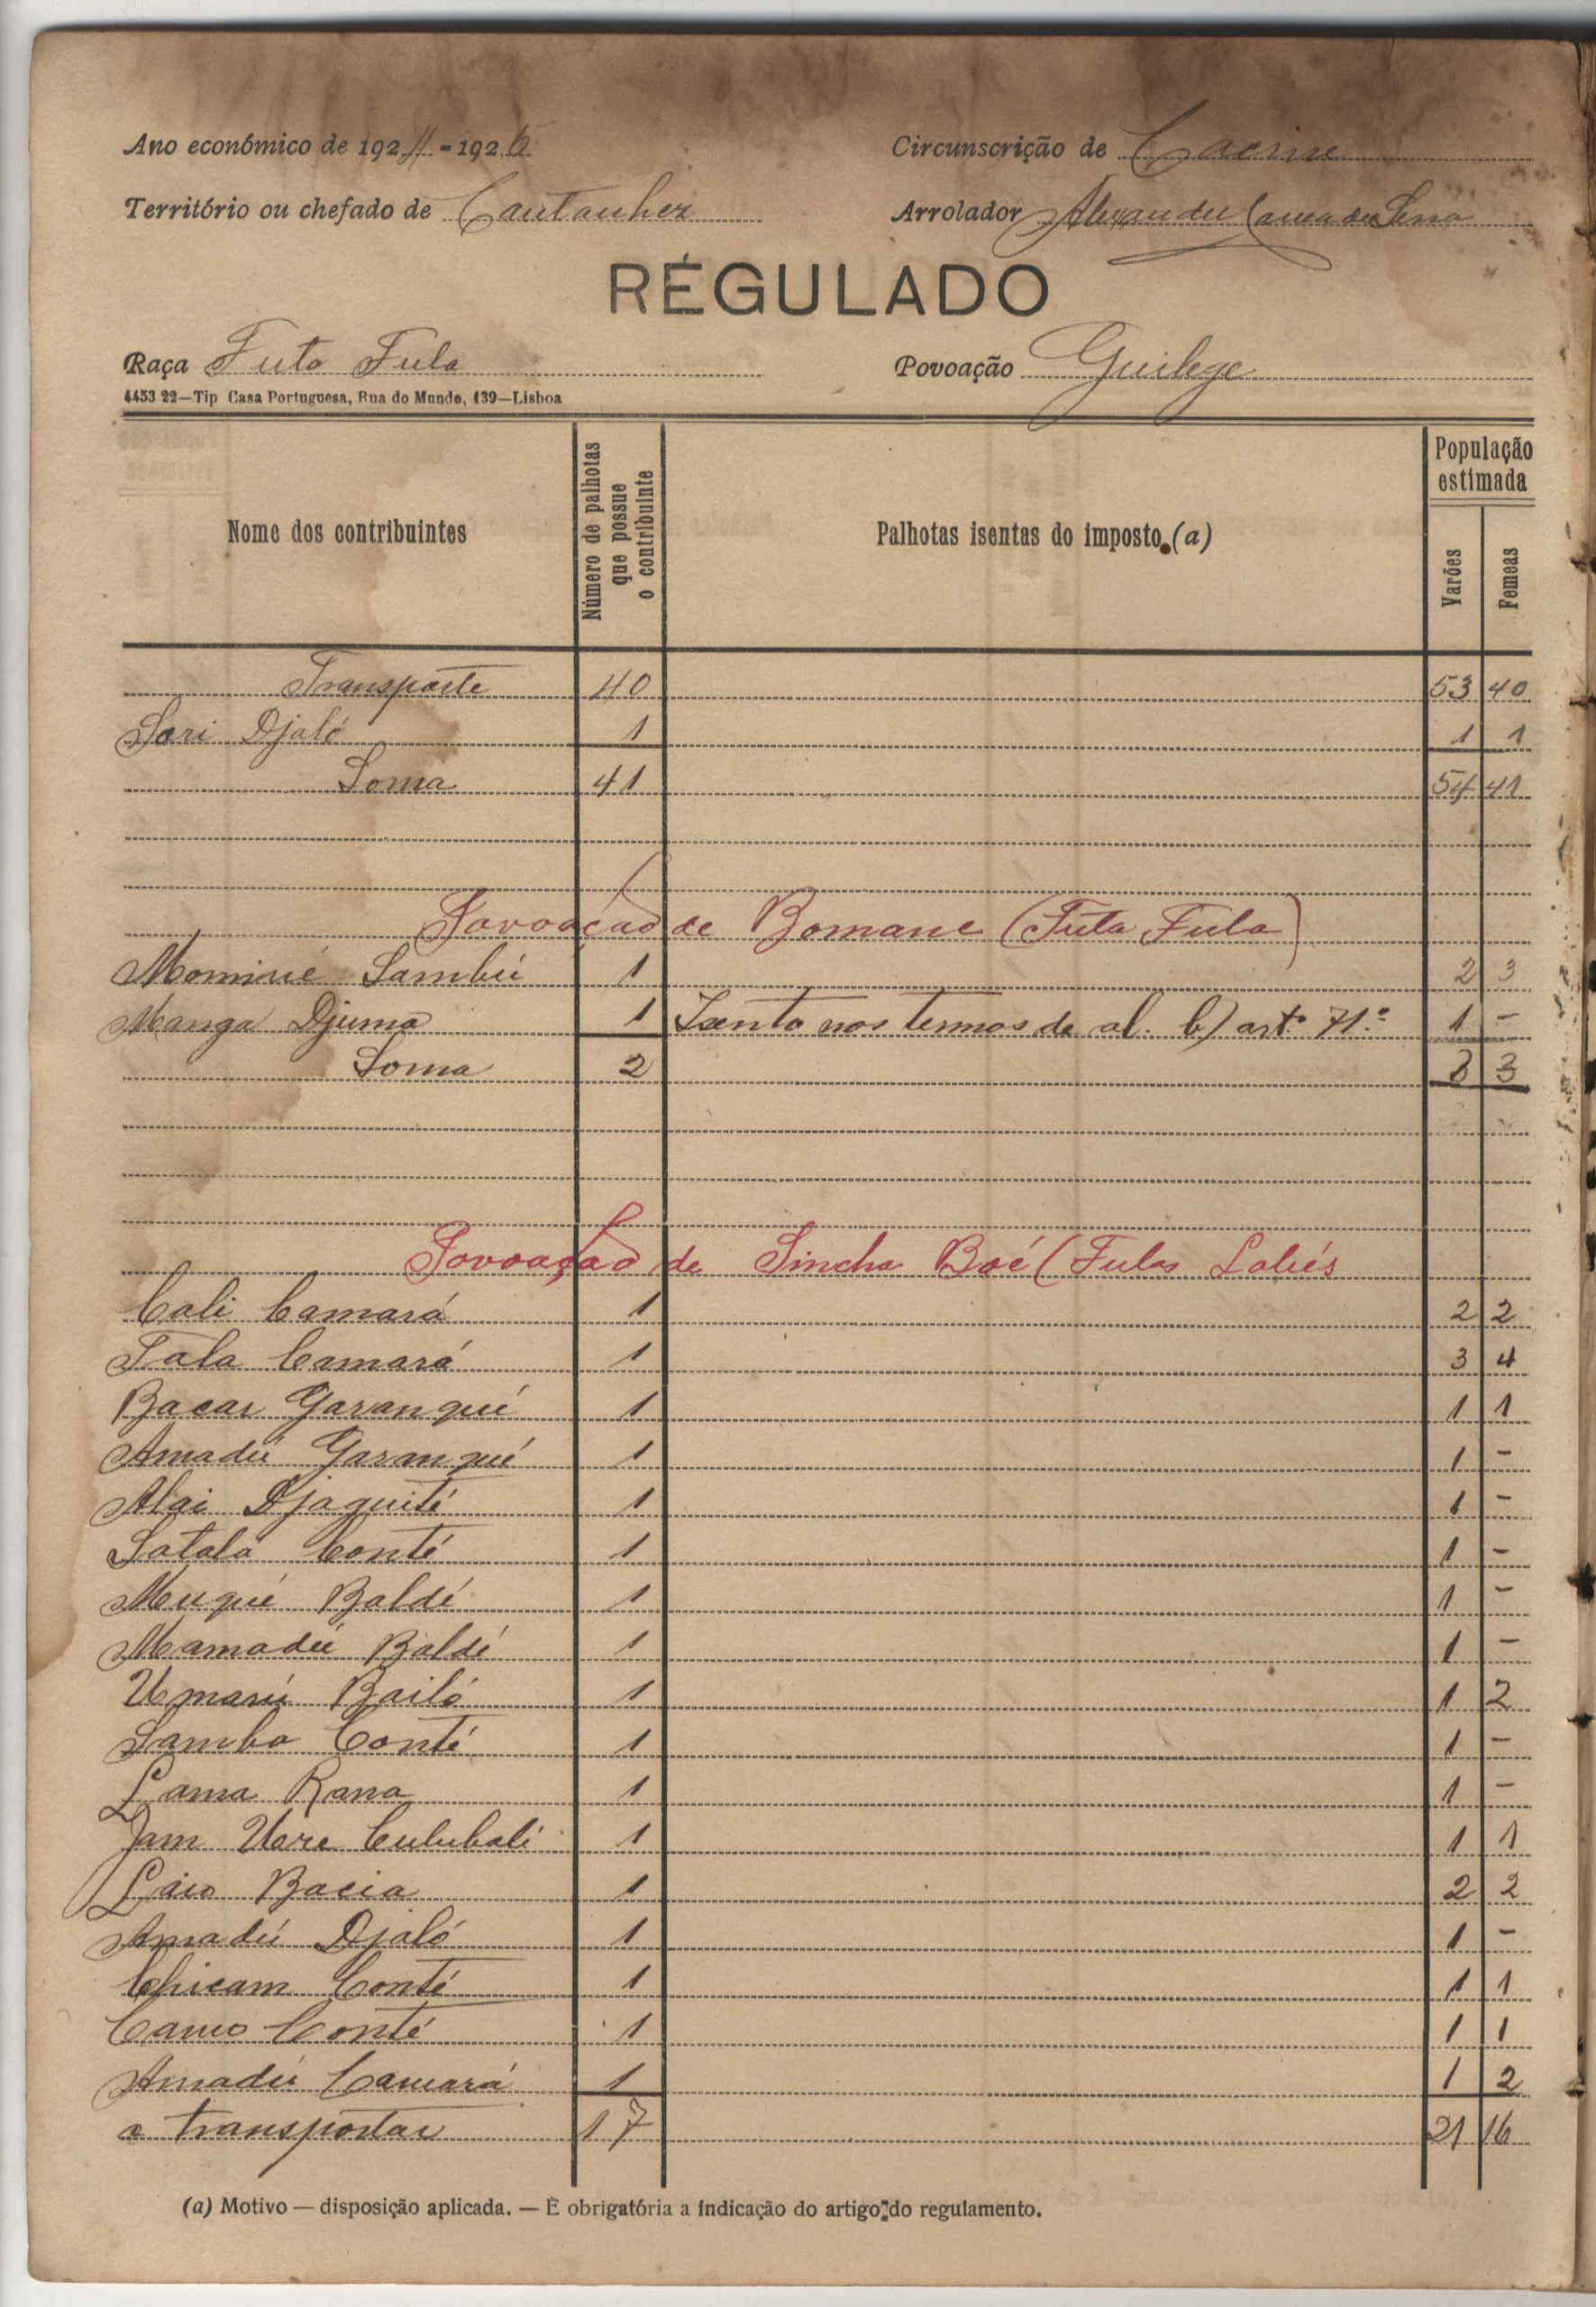 Ano económico de 192 - 192
Circunscrição de Cacine
Território ou chefado de Cantanhez
Arrolador Alexandre Correa de Sena
RÉGULADO
Raça Futa Fula
Povoação Guilege
4453 22—Tip Casa Portuguesa, Rua do Mundo, 139—Lisboa
Nome dos contribuintes
Número de palhotas que possue o contribuinte
Palhotas isentas do imposto (a)
População estimada
Varões
Femeas
Transporte 40 53 40
Sori Djaló 1 1 1
Soma 41 54 41
Povoação de Bomane (Futa Fula)
Mominié Sambú 1 2 3
Manga Djuma 1 Isento nos termos da al. b) art.º 71.º 1 -
Soma 2 3 3
Povoação de Sincha Boé (Fulas Labés
Cali Camará 1 2 2
Tala Camará 1 3 4
Bacar Garanqué 1 1 1
Amadú Garanqué 1 1 -
Alai Djaquité 1 1 -
Satala Conté 1 1 -
Muqué Baldé 1 1 -
Mamadú Baldé 1 1 -
Umarú Bailó 1 1 2
Samba Conté 1 1 -
Lama Rana 1 1 -
Jam Uere Culubali 1 1 1
Laio Bacia 1 2 2
Amadú Djaló 1 1 -
Chicam Conté 1 1 1
Camo Conté 1 1 1
Amadú Camará 1 1 2
a transportar 17 21 16
(a) Motivo — disposição aplicada. — É obrigatória a indicação do artigo do regulamento.